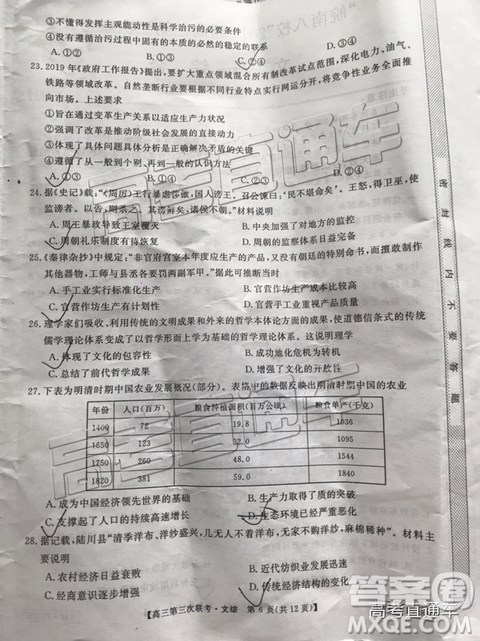 ③不懂得发挥主观能动性是科学治污的必要条件
④没有遵循治污过程中固有的本质的必然的稳定的联系
A.①② B.①③ C.②④ D.③④
23.2019年《政府工作报告》提出,要扩大重点领域混合所有制改革试点范围,深化电力、油气、
铁路等领域改革。自然垄断行业要根据不同行业特点实行网运分开,将竞争性业务全面推
向市场。上述要求
①旨在通过变革生产关系以适应生产力状况
②强调了改革是推动阶级社会发展的直接动力
③体现了具体问题具体分析是马克思主义的活的灵魂
④遵循了从一般到个别,再到一般的认识秩序
A.①② B.①③ C.②④ D.③④
24.据《史记》载:“(周厉)王行暴虐侈傲,国人谤王。召公谏曰:‘民不堪命矣’。王怒,得卫巫,使
监谤者。以告,则杀之。其谤鲜矣,诸侯不朝。”材料说明
A.周王暴政导致王室覆灭 B.中央加强了对地方的监控
C.周朝礼乐制度有待恢复 D.周朝的统治出现了危机
25.《秦律杂抄》中规定:“非官府宫室本年度应生产的产品,又没有朝廷的特别命令,而擅敢制作
其他器物,工师与县丞各要罚两副军甲。”据此可推断当时
A.手工业实行标准化生产 B.官营作坊生产成本比较高
C.官营作坊生产有计划性 D.官营手工业重视产品质量
26.理学家们吸收、利用传统的文明成果和外来的哲学本体论方面的成果,使道德信条式的传统
儒学理论体系变成了以哲学形而上学为基础的哲学理论体系。这说明理学
A.体现了文化的包容性 B.具有思辨化的色彩
C.总结了前代哲学成果 D.增强了生活的实践性
27.下表为明清时期中国农业发展概况(部分)。表格中的数据反映出明清时期中国的农业
年份 人口(百万) 粮食种植面积(百万公顷) 粮食单产(千克)
1400 72 19.8 1036
1650 123 32.0 1054
1750 260 48.0 1544
1820 381 59.0 1840
A.成为中国经济领先世界的基础 B.生产力取得了质的突破
C.支撑起了人口的持续高速增长 D.生态环境已经严重恶化
28.据记载,陆川县“清季洋布、洋纱盛兴,几无人不着洋布,无家不购洋纱,麻棉稀种”。材料主
要说明
A.农村经济日益衰败 B.近代纺织业发展迅速
C.自然经济日趋解体 D.社会生活消费多元化
【高三第三次联考·文综 第6页(共12页)】
密封线内不要答题
高考直通车
高考直通车
答案圈
高考直通车